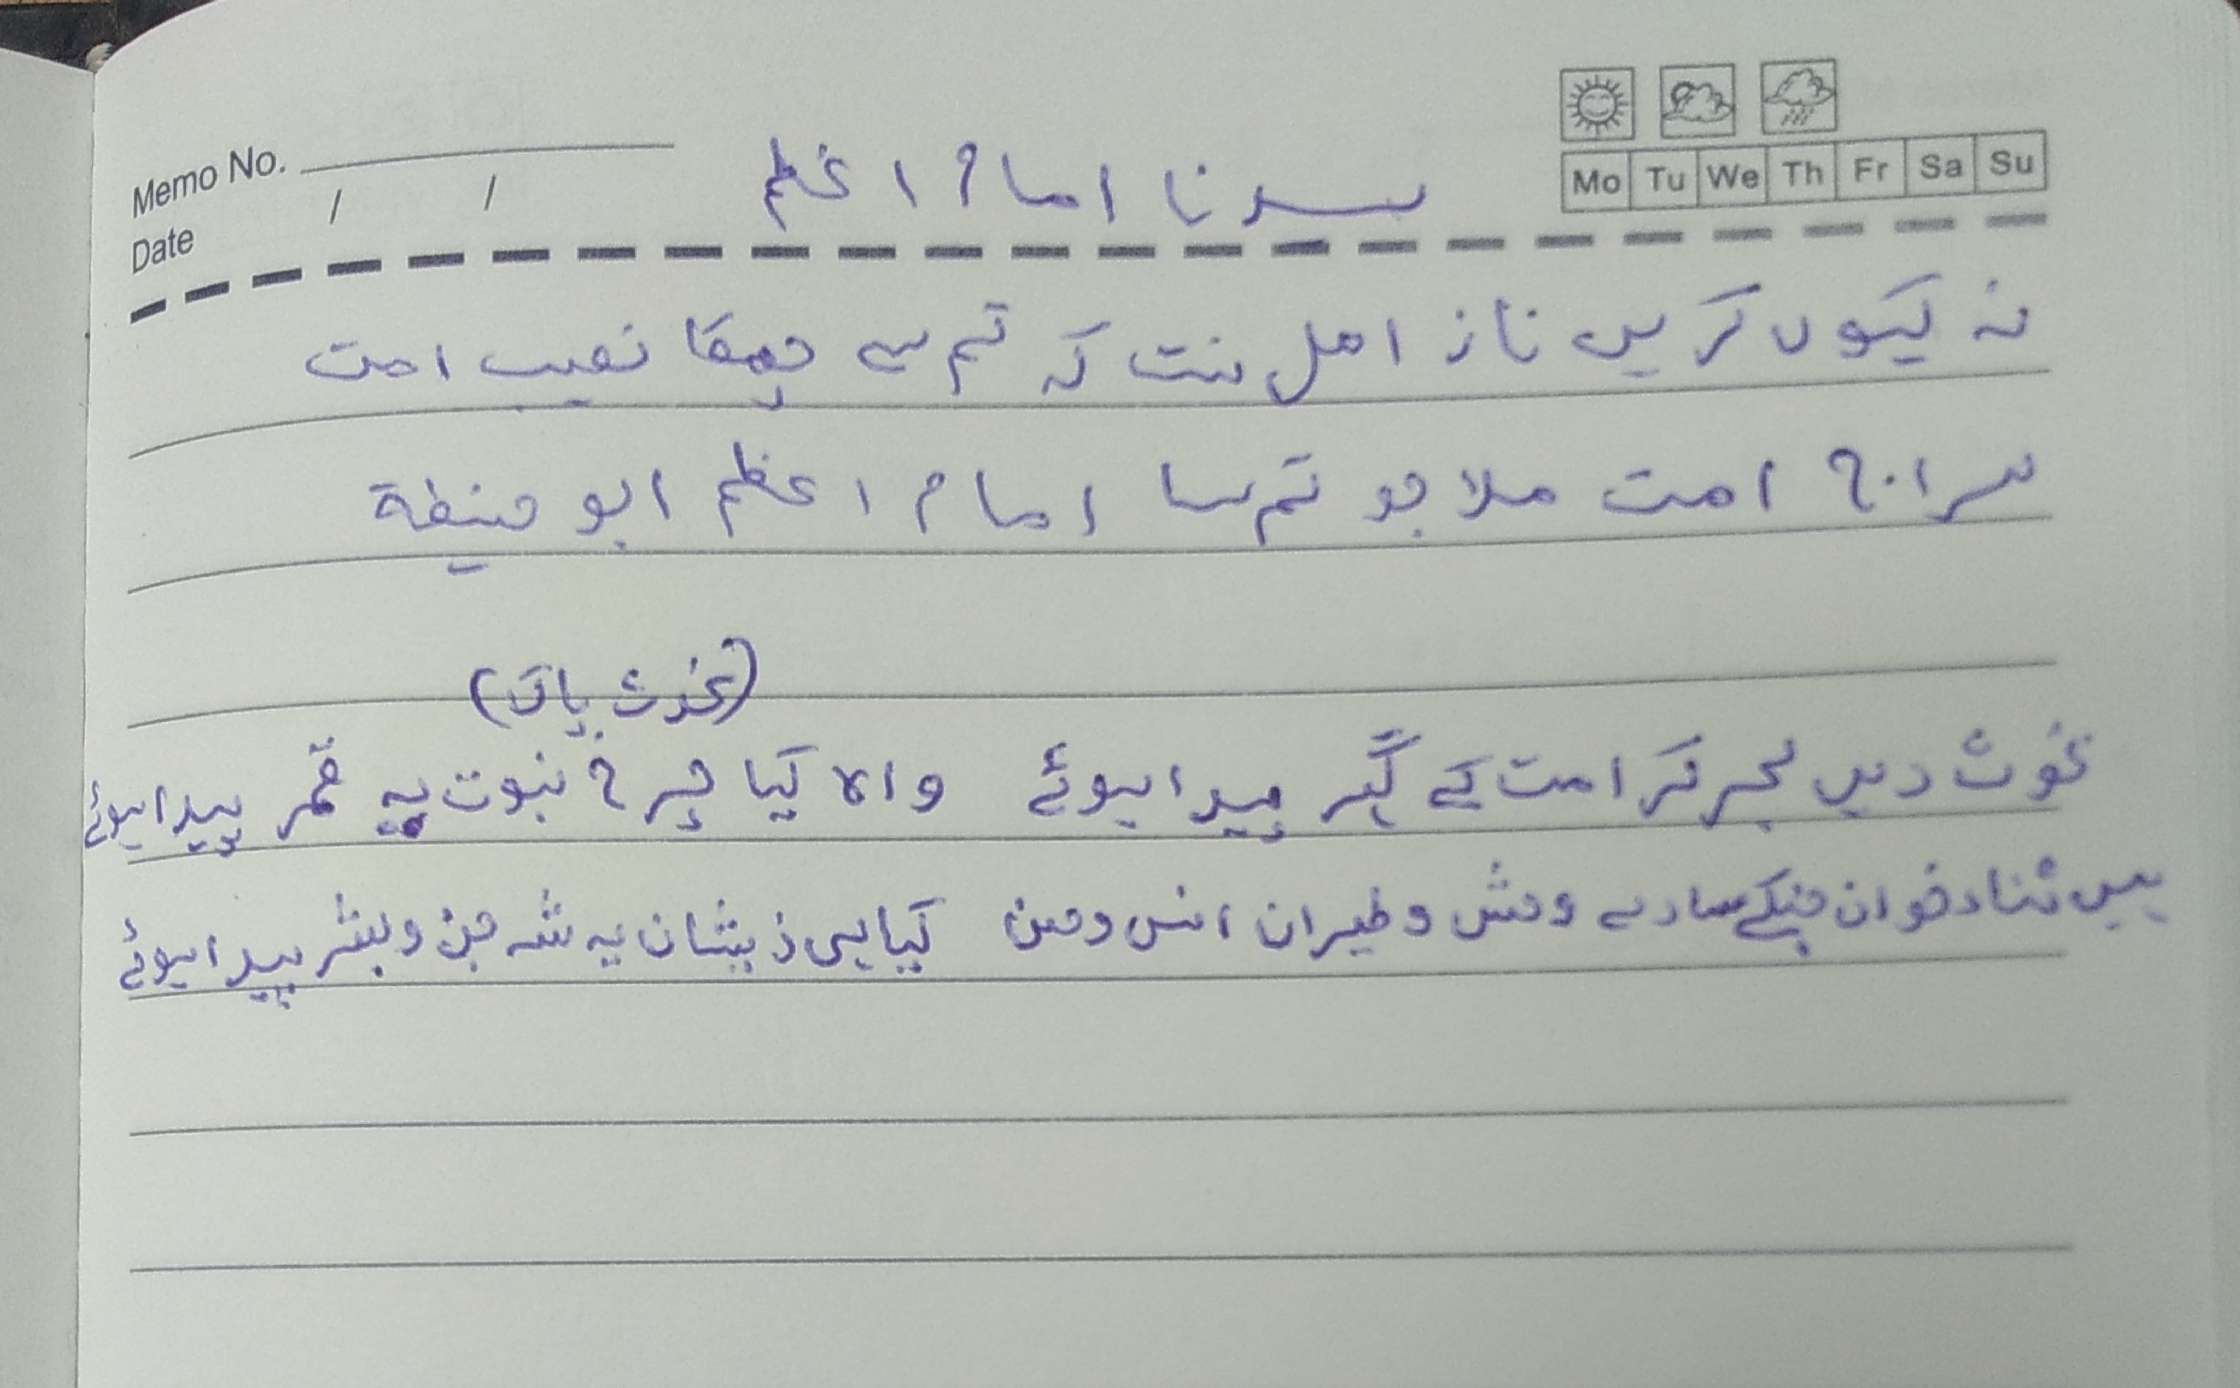 Memo No.
Date / /
Mo Tu We Th Fr Sa Su
سیدنا امام اعظم
نہ کیوں کریں ناز اھل سنت کہ تم سے چمکا نصیب امت
سراج امت ملا جو تم سا امام اعظم ابو حنیفة
(غوث پاک)
غوث دیں بحر کرامت کے گہر پیدا ہوئے واہ کیا چرخ نبوت پہ قمر پیدا ہوئے
ہیں ثناء خوان جنکے سارے وحش و طیران انس و جن کیا ہی ذیشان یہ شہ جن و بشر پیدا ہوئے